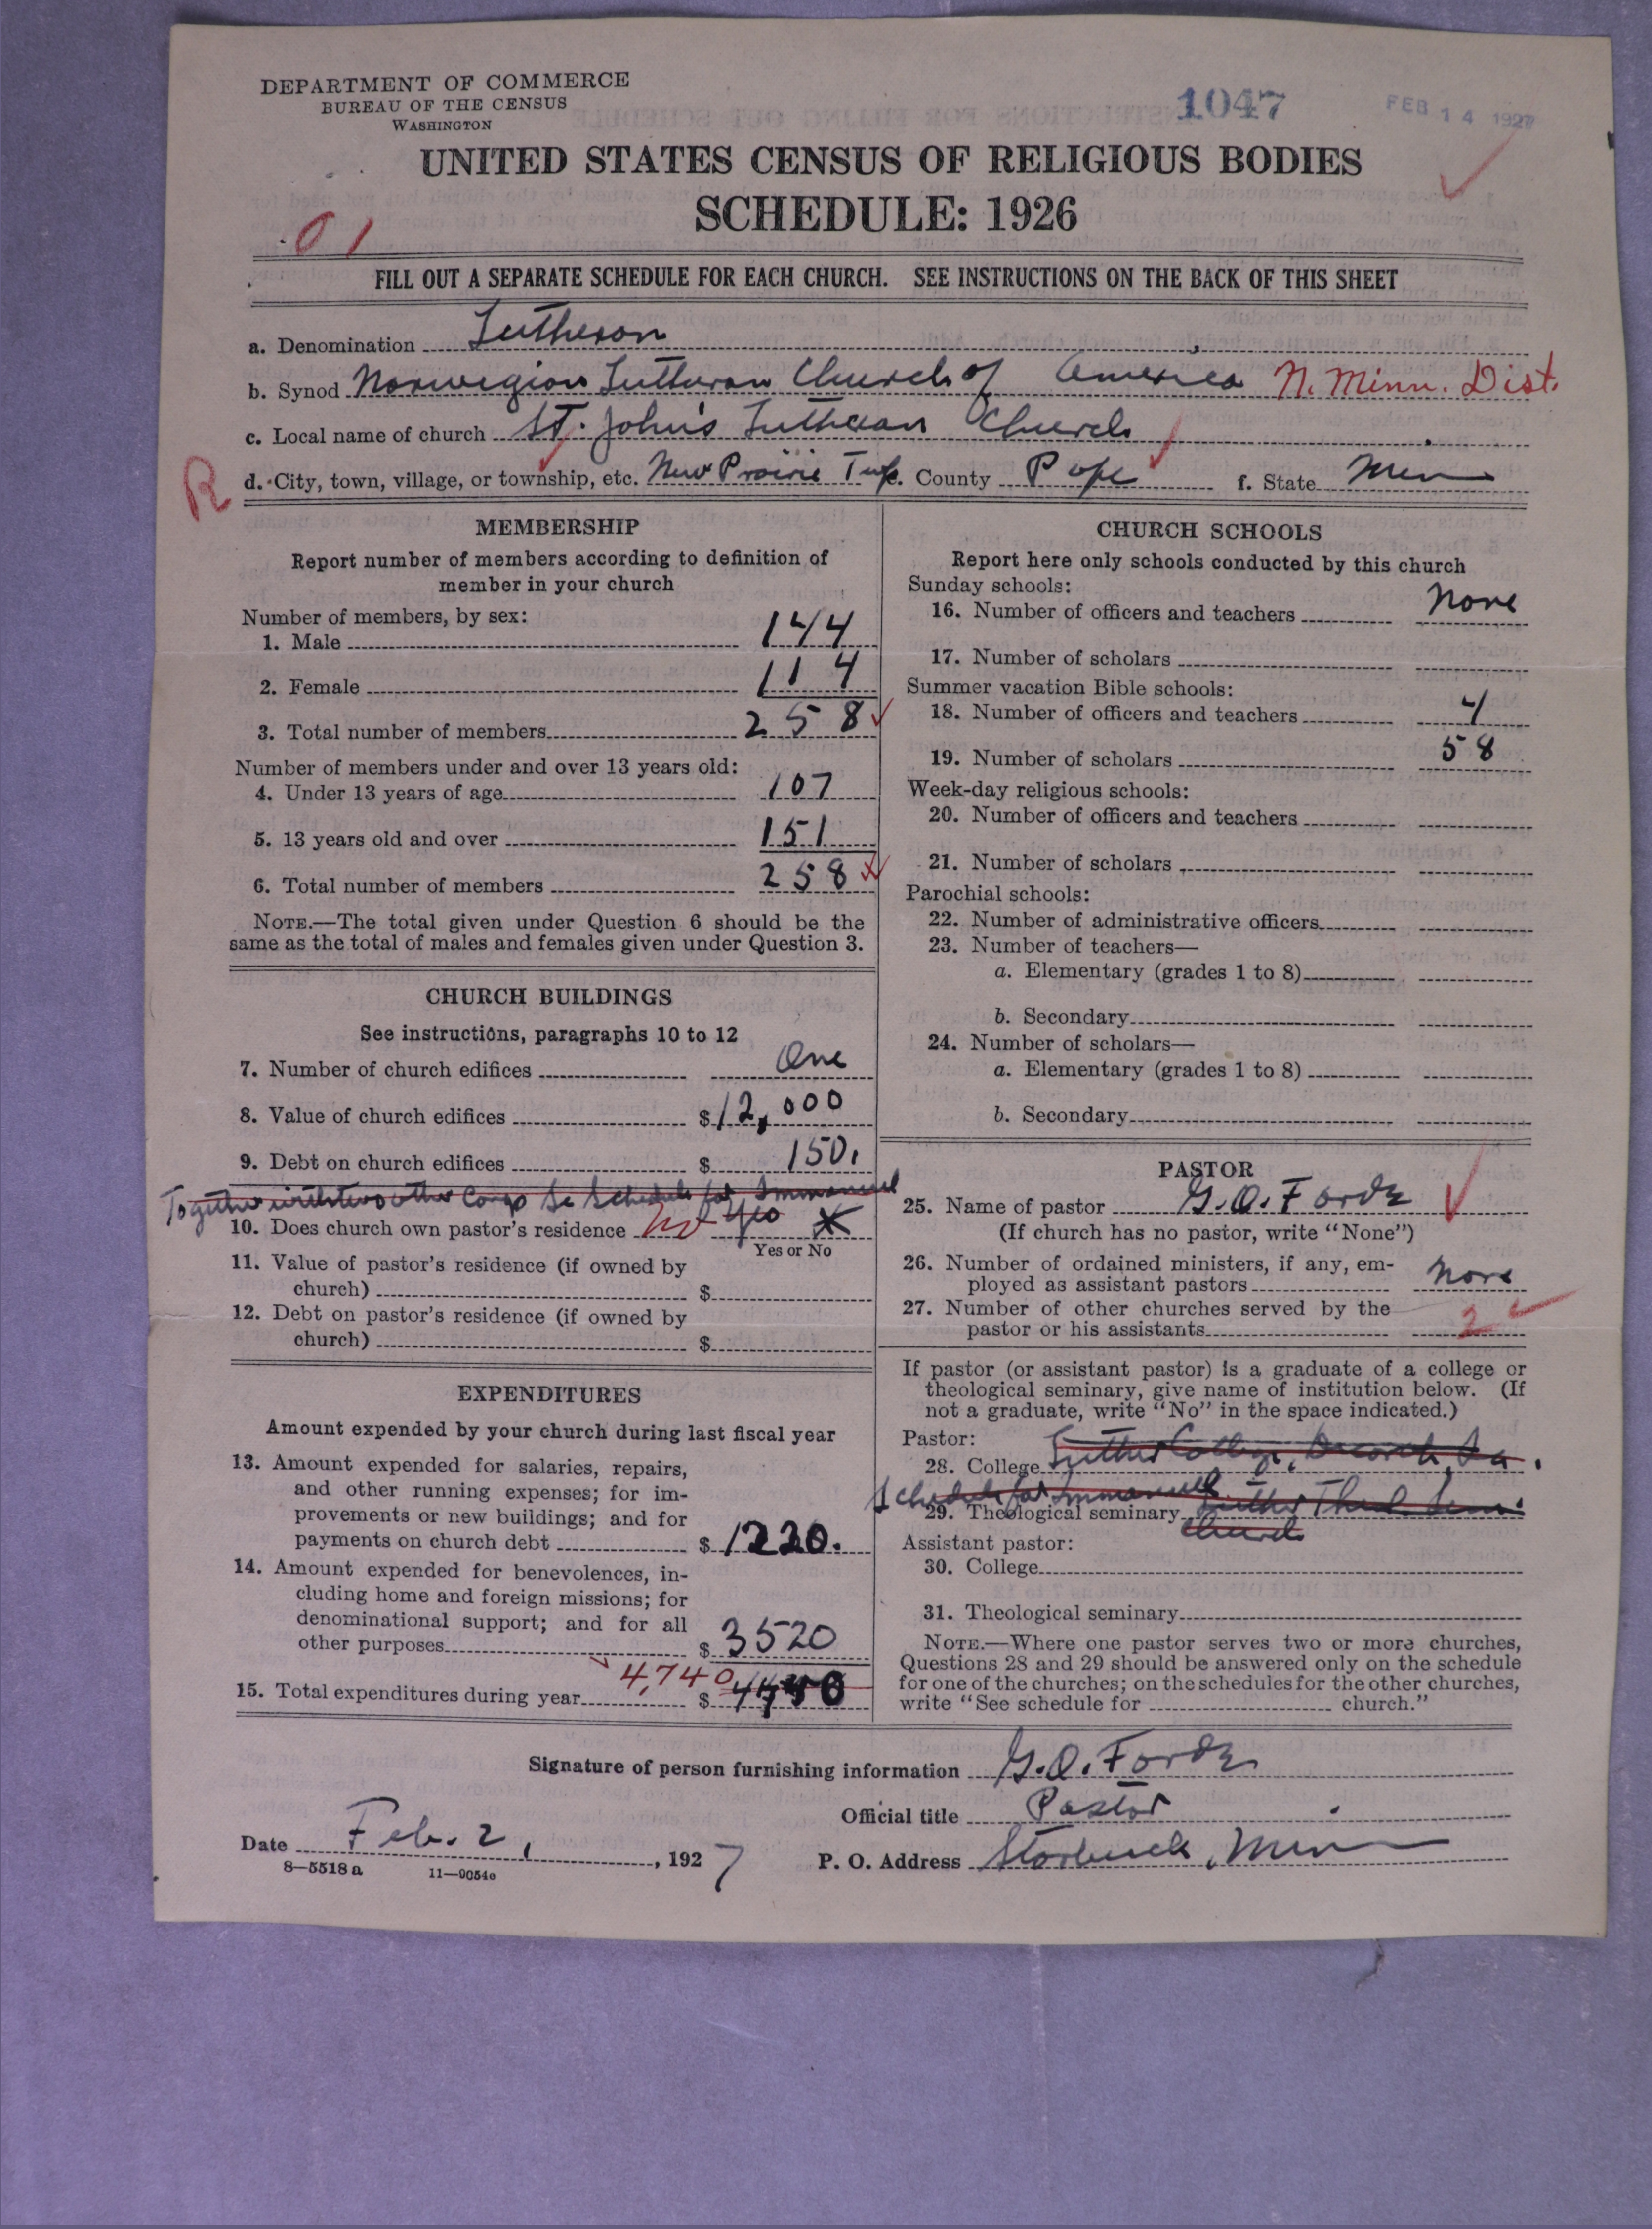 DEPARTMENT OF COMMERCE
BUREAU OF THE CENSUS
WASHINGTON
1047
FEB 14 1927
UNITED STATES CENSUS OF RELIGIOUS BODIES
SCHEDULE: 1926
01
FILL OUT A SEPARATE SCHEDULE FOR EACH CHURCH. SEE INSTRUCTIONS ON THE BACK OF THIS SHEET
a. Denomination Lutheran
b. Synod Norwegian Lutheran Church of America N. Minn. Dist.
c. Local name of church St. John's Lutheran Church
R d. City, town, village, or township, etc. New Prairie Twp. County Pope f. State Minn
MEMBERSHIP
Report number of members according to definition of
member in your church
Number of members, by sex:
1. Male 144
2. Female 114
3. Total number of members 258
Number of members under and over 13 years old:
4. Under 13 years of age 107
5. 13 years old and over 151
6. Total number of members 258
NOTE.—The total given under Question 6 should be the
same as the total of males and females given under Question 3.
CHURCH BUILDINGS
See instructions, paragraphs 10 to 12
7. Number of church edifices One
8. Value of church edifices $12,000
9. Debt on church edifices $150.
Together with two other Congs Se Schedule for Immanuel
10. Does church own pastor's residence no yes
Yes or No
11. Value of pastor's residence (if owned by
church) $
12. Debt on pastor's residence (if owned by
church) $
EXPENDITURES
Amount expended by your church during last fiscal year
13. Amount expended for salaries, repairs,
and other running expenses; for im-
provements or new buildings; and for
payments on church debt $1220.
14. Amount expended for benevolences, in-
cluding home and foreign missions; for
denominational support; and for all
other purposes $3520
15. Total expenditures during year 4,740 $
CHURCH SCHOOLS
Report here only schools conducted by this church
Sunday schools:
16. Number of officers and teachers None
17. Number of scholars
Summer vacation Bible schools:
18. Number of officers and teachers 4
19. Number of scholars 58
Week-day religious schools:
20. Number of officers and teachers
21. Number of scholars
Parochial schools:
22. Number of administrative officers
23. Number of teachers—
a. Elementary (grades 1 to 8)
b. Secondary
24. Number of scholars—
a. Elementary (grades 1 to 8)
b. Secondary
PASTOR
25. Name of pastor G. O. Forde
(If church has no pastor, write "None")
26. Number of ordained ministers, if any, em-
ployed as assistant pastors None
27. Number of other churches served by the
pastor or his assistants 2
If pastor (or assistant pastor) is a graduate of a college or
theological seminary, give name of institution below. (If
not a graduate, write "No" in the space indicated.)
Pastor:
28. College Luther College, Decorah, Ia.
Schedule for Immanuel
29. Theological seminary Luther Theol Sem.
Church
Assistant pastor:
30. College
31. Theological seminary
NOTE.—Where one pastor serves two or more churches,
Questions 28 and 29 should be answered only on the schedule
for one of the churches; on the schedules for the other churches,
write "See schedule for church."
Signature of person furnishing information G. O. Forde
Official title Pastor
Date Feb. 2, 1927
P. O. Address Starbuck, Minn
8—5518 a 11—9054e